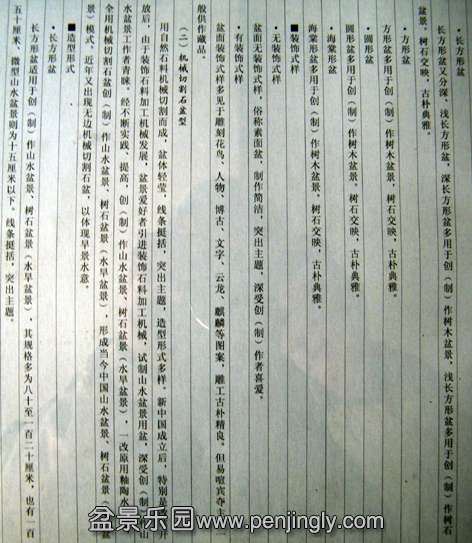 •长方形盆
长方形盆又分深、浅长方形盆,深长方形盆多用于创(制)作树木盆景,浅长方形盆多用于创(制)作树石
盆景,树石交映,古朴典雅。
•方形盆
方形盆多用于创(制)作树木盆景,树石交映,古朴典雅。
•圆形盆
圆形盆多用于创(制)作树木盆景,树石交映,古朴典雅。
•海棠形盆
海棠形盆多用于创(制)作树木盆景,树石交映,古朴典雅。
■装饰式样
•无装饰式样
盆面无装饰式样,俗称素面盆,制作简洁,突出主题,深受创(制)作者喜爱。
•有装饰式样
盆面装饰式样多见于雕刻花鸟、人物、博古、文字、云龙、麒麟等图案,雕工古朴精良。但易喧宾夺主,一
般供作藏品。
(二)机械切割石盆型
用自然石料机械切割而成,盆体轻莹,线条挺括,造型形式多样。新中国成立后,特别是改革开
放后,由于装饰石料加工机械发展,盆景爱好者引进装饰石料加工机械,试制山水盆景用盆,深受创(制)作山
水盆景工作者青睐。经不断实践、提高,创(制)作山水盆景、树石盆景(水旱盆景),一改原用釉陶水盆
全用机械切割石盆创(制)作山水盆景、树石盆景(水旱盆景),形成当今中国山水盆景、树石盆景(水旱盆
景)模式,近年又出现无边机械切割石盆,以体现旱景水意。
■造型形式
•长方形盆
长方形盆适用于创(制)作山水盆景、树石盆景(水旱盆景),其规格多为八十至一百二十厘米,也有一百
五十厘米,微型山水盆景则为十五厘米以下。线条挺括,突出主题。
盆景乐园www.penjingly.com